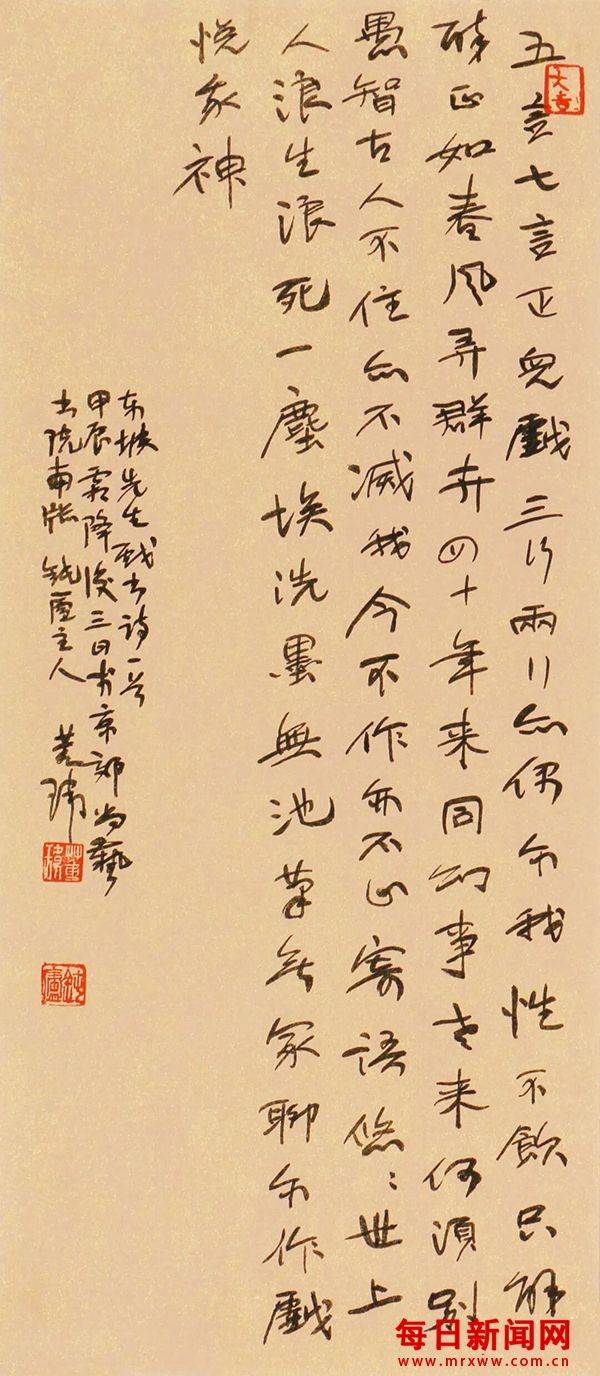 大吉
五言七言正兒戲三行兩行亦偶尔我性不飲只解
醉正如春風弄群卉四十年来同幻事老来何須别
愚智古人不住亦不滅我今不作亦不止寄語悠〻世上
人浪生浪死一塵埃洗墨無池筆无冢聊尔作戲
悦我神
东坡先生戏书诗一首
甲辰霜降後三日於京郊尚藝
书院南牕 主人 董玮
每日新闻网
www.mrxww.com.cn